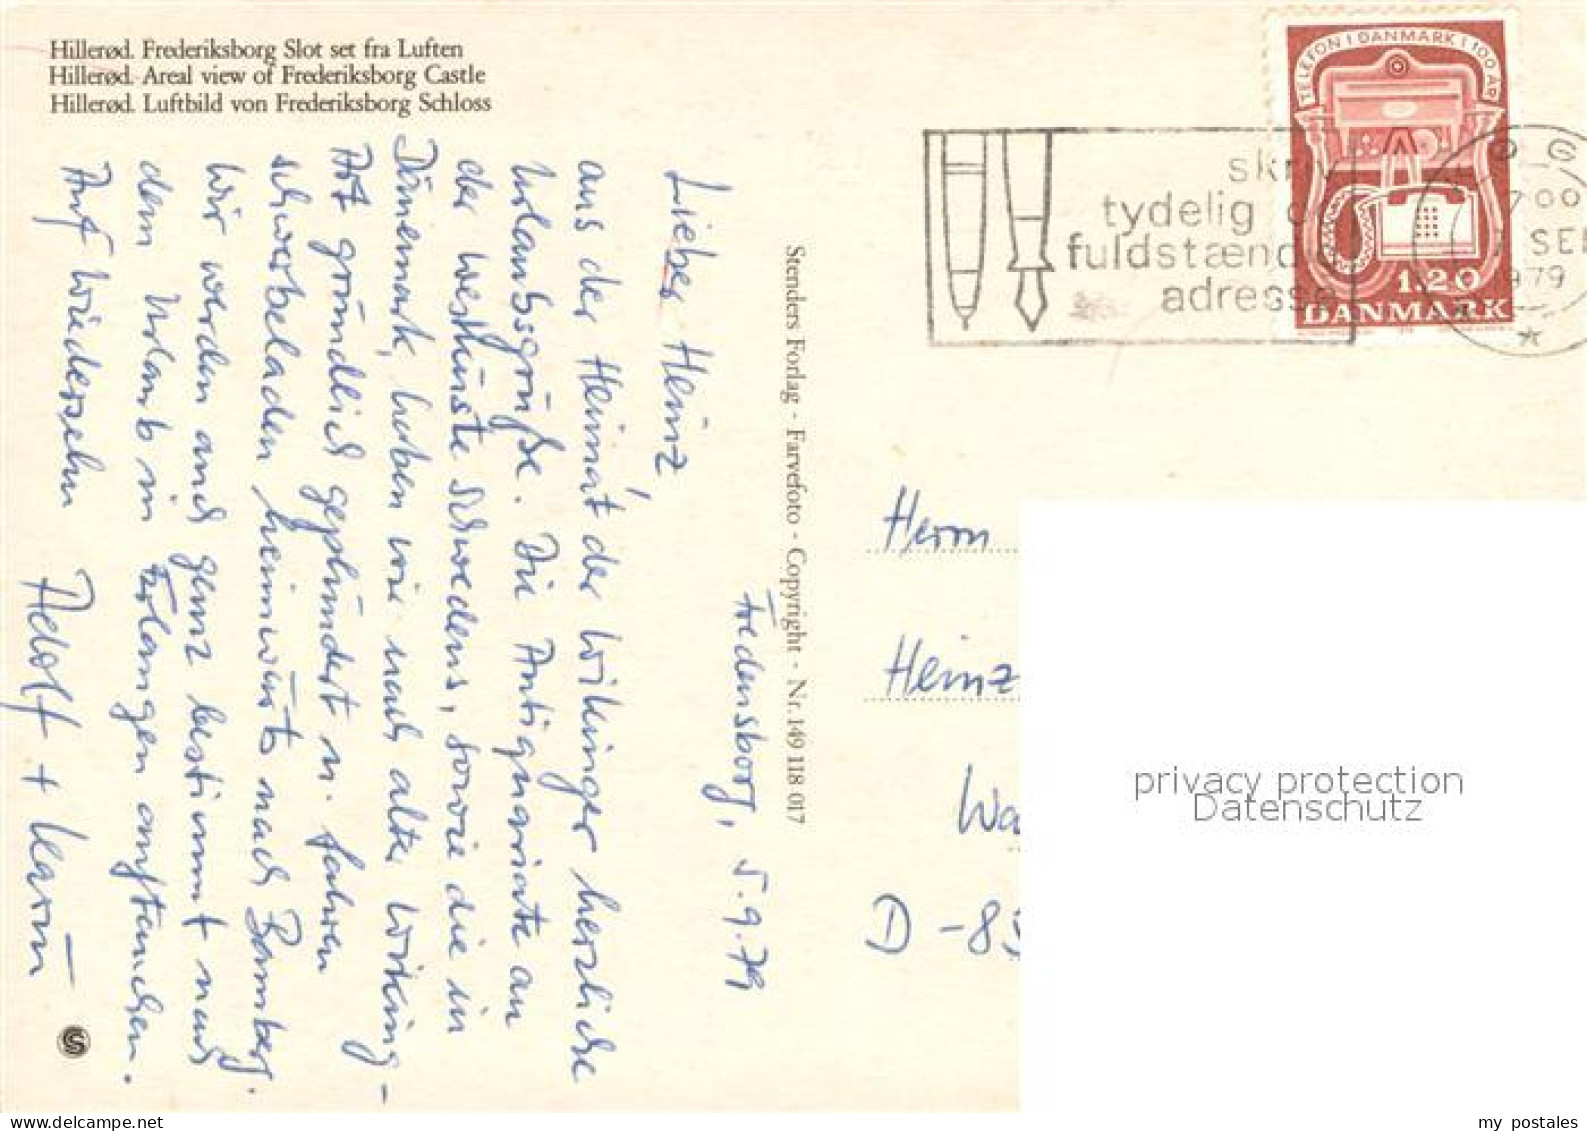 Hillerød. Frederiksborg Slot set fra Luften
Hillerød. Areal view of Frederiksborg Castle
Hillerød. Luftbild von Frederiksborg Schloss
TELEFON I DANMARK I 100 ÅR
1.20
DANMARK
skriv
tydelig
fuldstænd
adresse
700
SEP
1979
Stenders Forlag - Farvefoto - Copyright - Nr. 149 118 017
Fredensborg, 5.9.79
Lieber Heinz,
aus der Heimat der Wikinger herzliche
Urlaubsgrüße. Die Antiquariate an
der Westküste Schwedens, sowie die in
Dänemark, haben wir nach alter Wiking-
Art gründlich geplündert u. fahren
schwerbeladen heimwärts nach Bamberg.
Wir werden auch ganz bestimmt nach
dem Urlaub in Erlangen auftauchen.
Auf Wiedersehn Adolf + Karin
Herrn
Heinz
Wa
D-85
privacy protection
Datenschutz
my postales